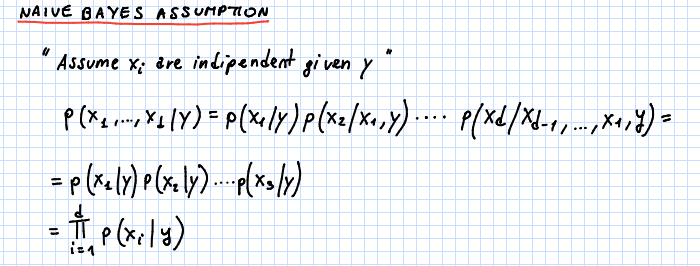 NAIVE BAYES ASSUMPTION
" Assume xᵢ are indipendent given y "
p(x₁,...,x_d|y) = p(x₁|y) p(x₂|x₁,y) ···· p(x_d|x_{d-1},...,x₁,y) =
= p(x₁|y) p(x₂|y) ····p(x₃|y)
= ∏_{i=1}^{d} p(xᵢ|y)